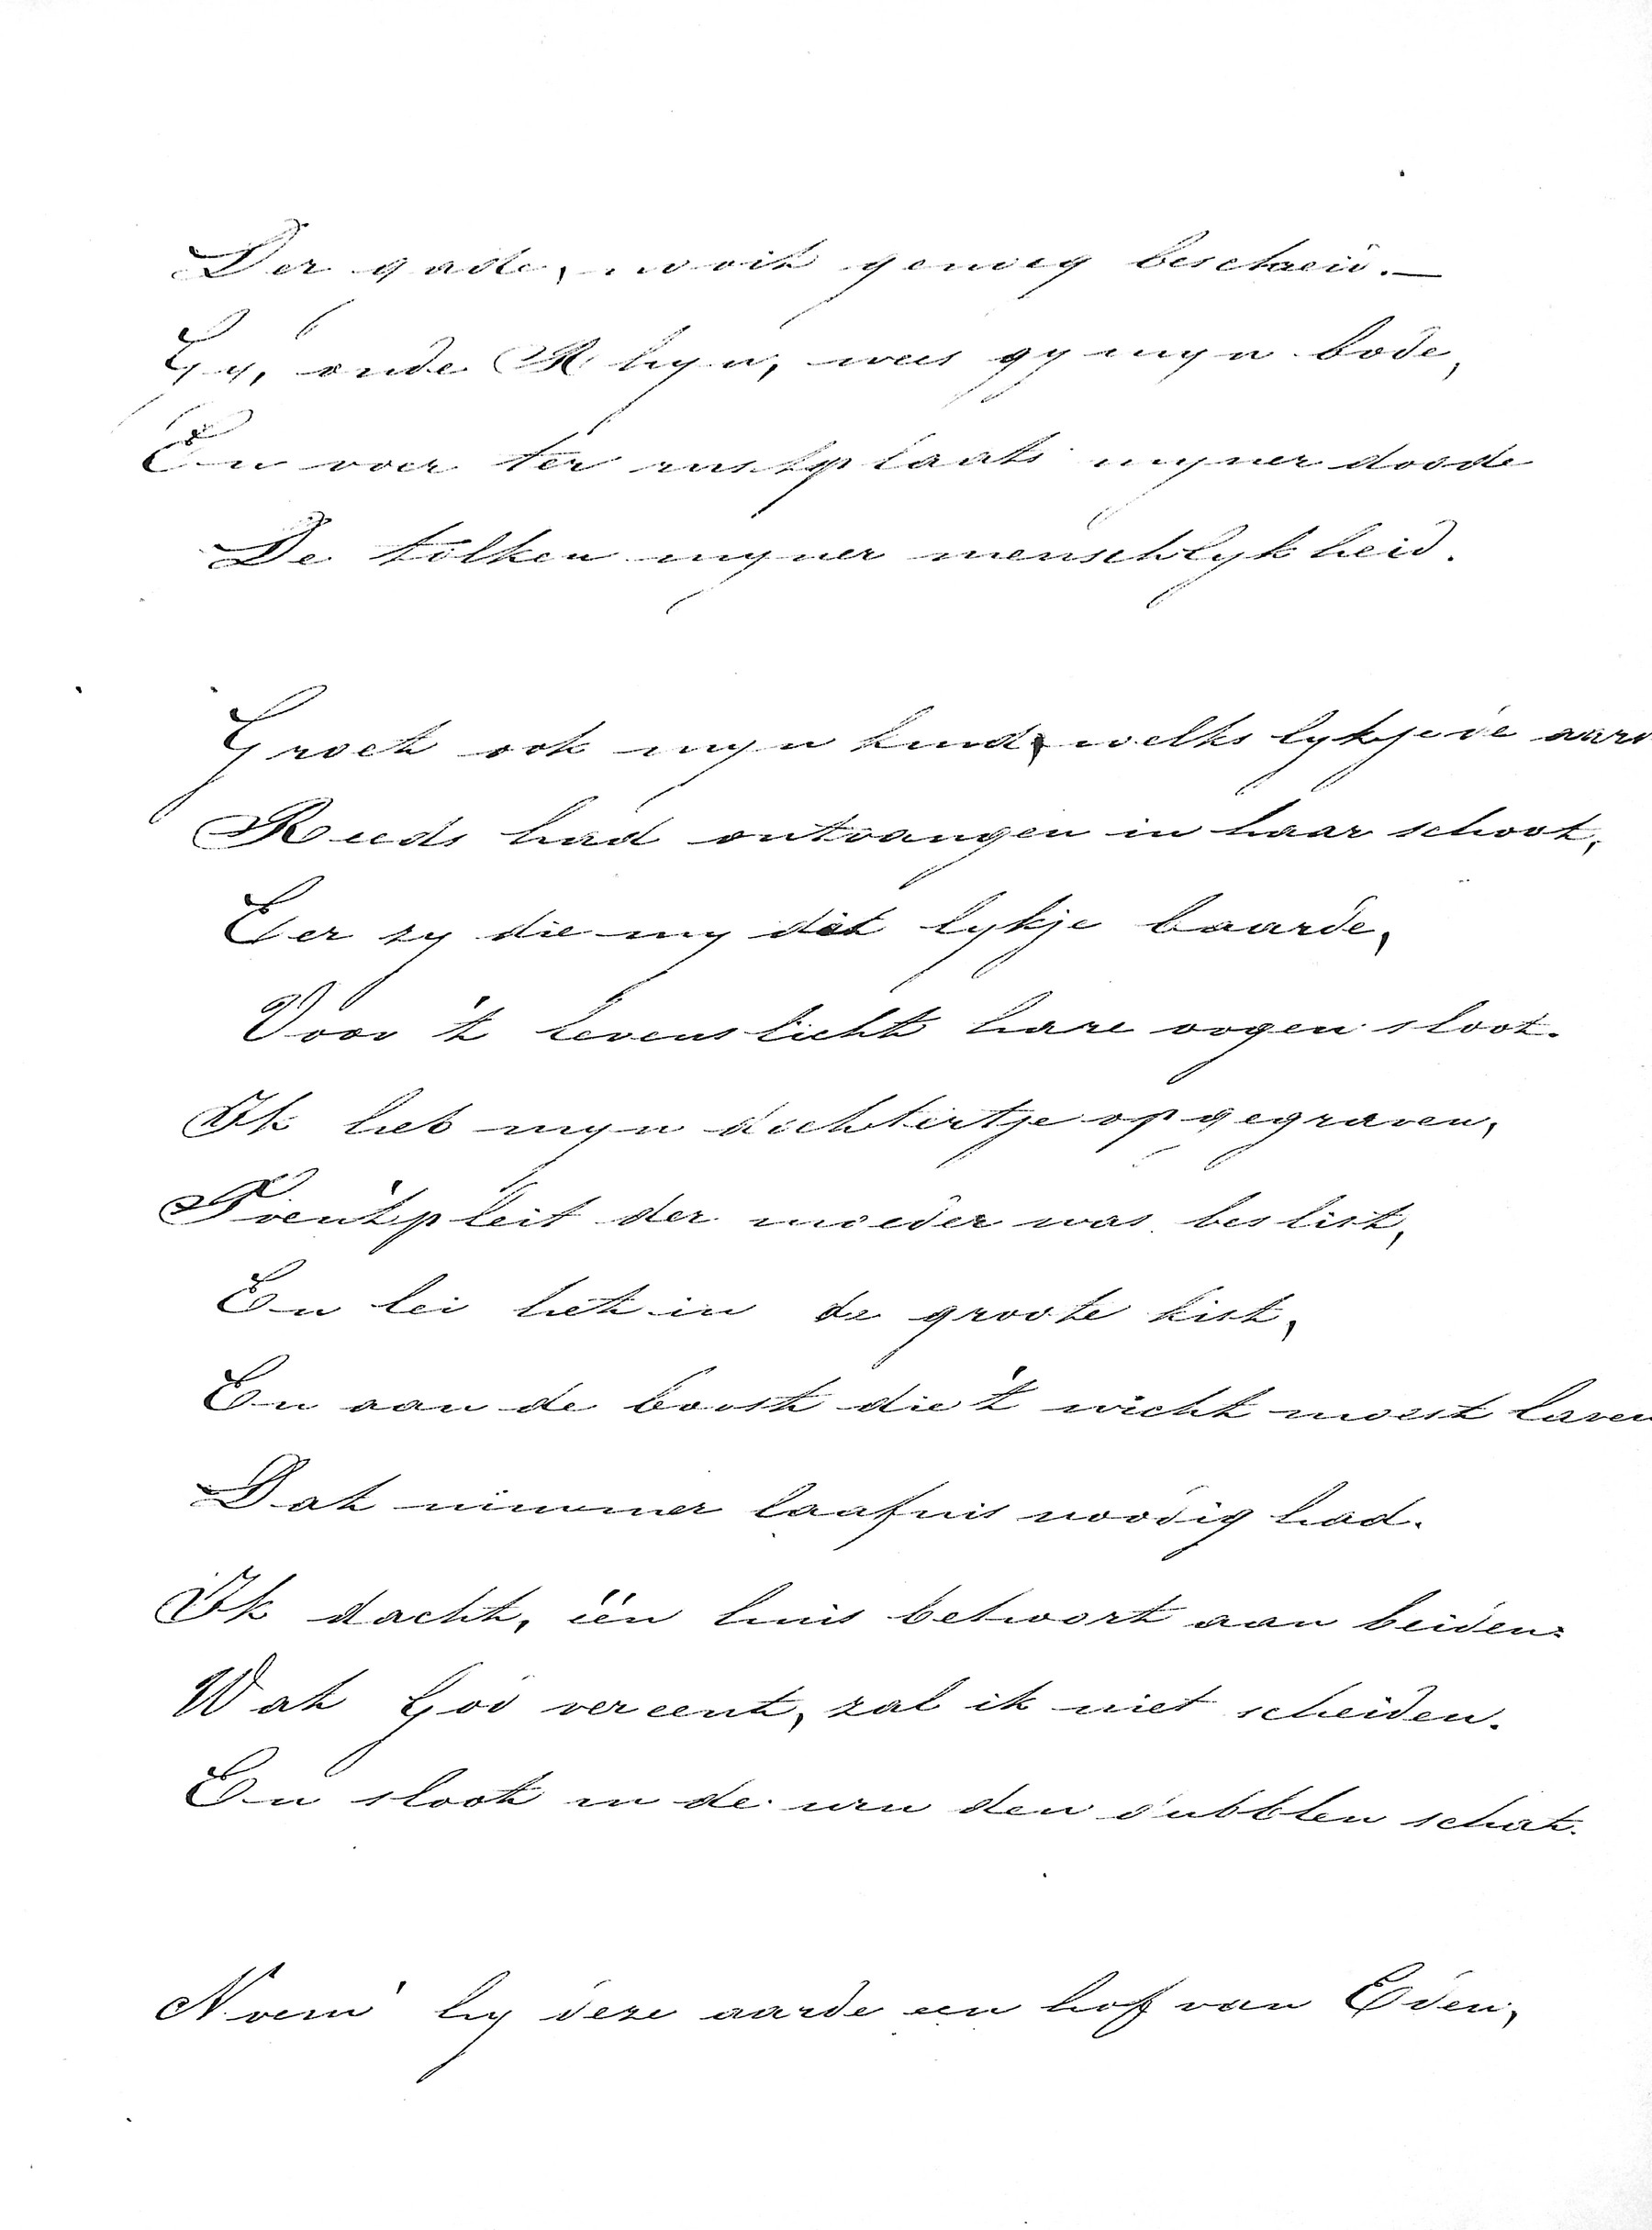 Der gade, nooit genoeg beschreid. —
Gy, oude Rhyn, wees gy myn bode,
En voer ter rustplaats myner doode
De tolken myner menschlykheid.
Groet ook myn kind, welks lykje de aard
Reeds had ontvangen in haar schoot,
Eer zy die my dat lykje baarde,
Voor 't levenslicht hare oogen sloot.
Ik heb myn dochtertje opgegraven,
Toen 't pleit der moeder was beslist,
En lei het in de groote kist,
En aan de borst die 't wicht moest laven
Dat nimmer laafnis noodig had.
Ik dacht, één huis behoort aan beiden:
Wat God vereent, zal ik niet scheiden.
En sloot in de urn den dubblen schat.
Noem' hy deze aarde een hof van Eden,